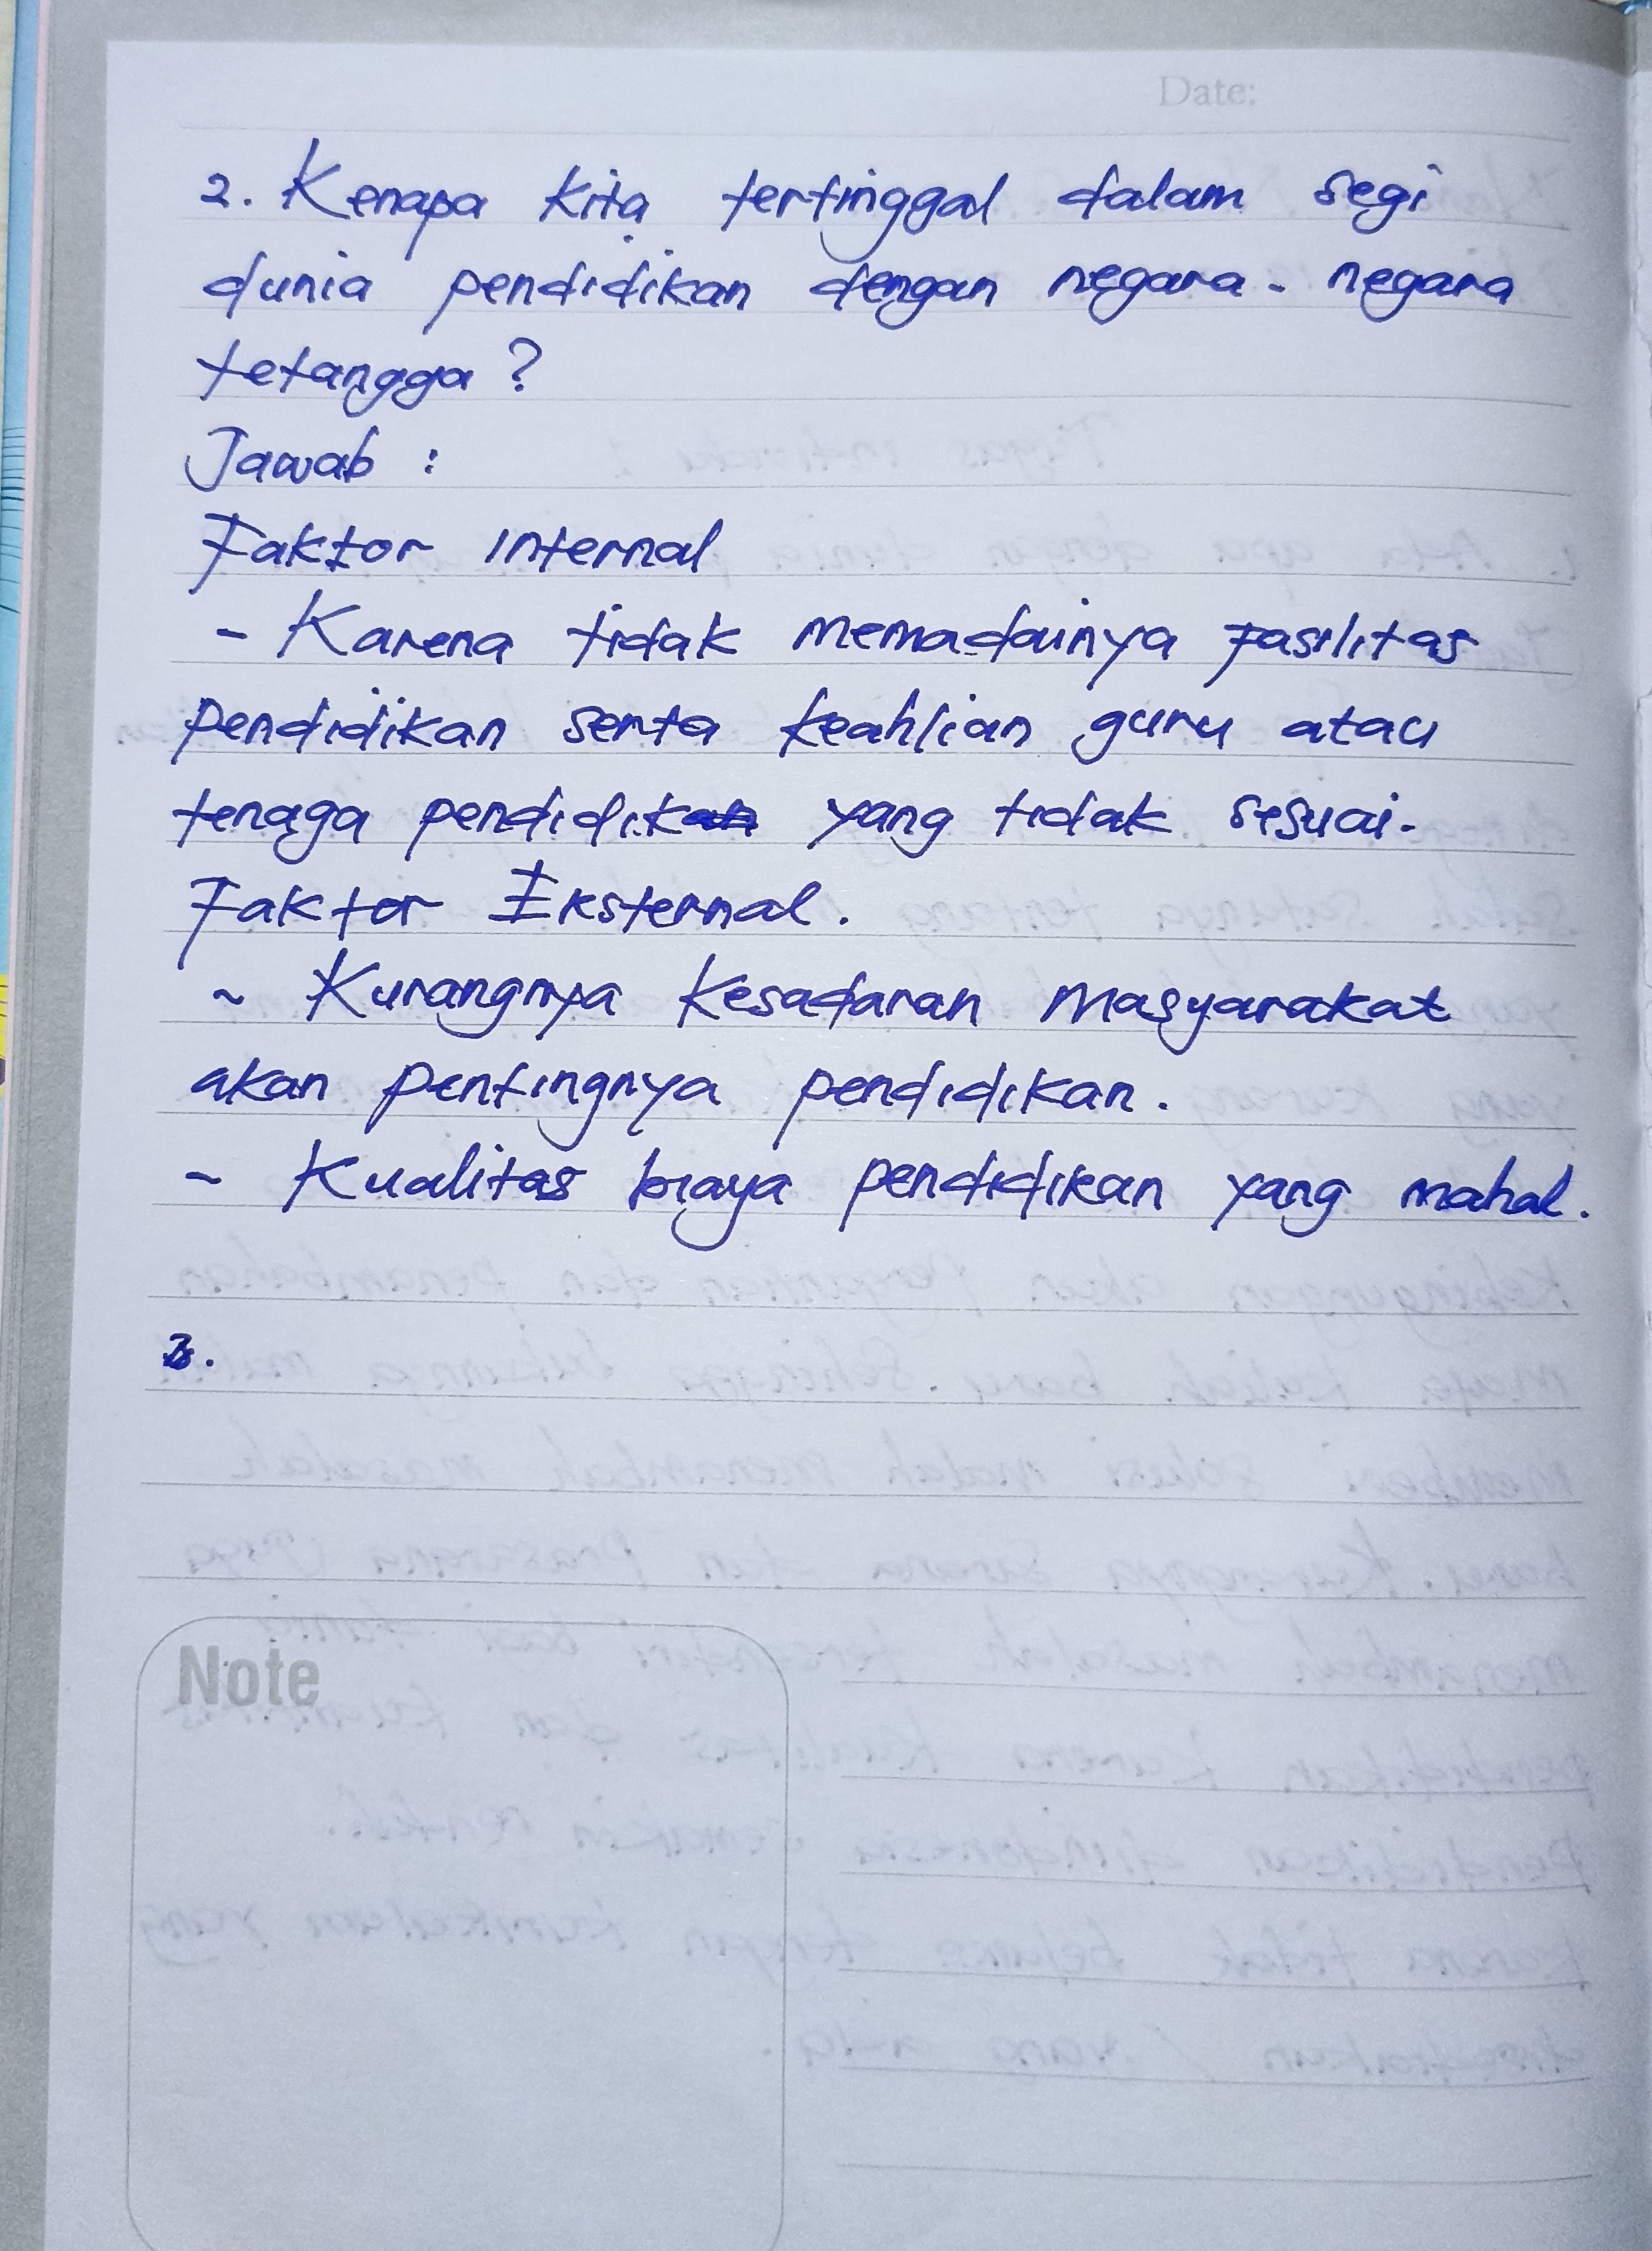 Date:
2. Kenapa kita tertinggal dalam segi
dunia pendidikan dengan negara - negara
tetangga ?
Jawab :
Faktor internal
- Karena tidak memadainya fasilitas
pendidikan serta keahlian guru atau
tenaga pendidik yang tidak sesuai.
Faktor Eksternal.
~ Kurangnya kesadaran masyarakat
akan pentingnya pendidikan.
~ Kualitas biaya pendidikan yang mahal.
3.
Note